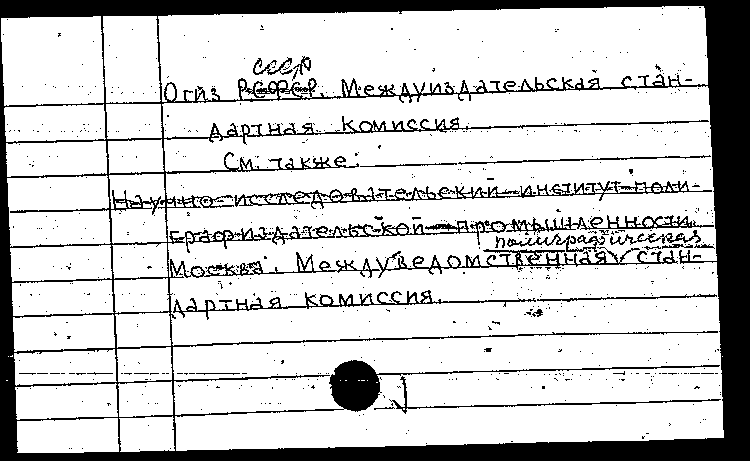 СССР
Огиз РСФСР. Междуиздательская стан-
дартная комиссия.
См. также:
Научно-исследовательский институт поли-
графиздательской промышленности.
полиграфическая
Москва. Междуведомственная стан-
дартная комиссия.